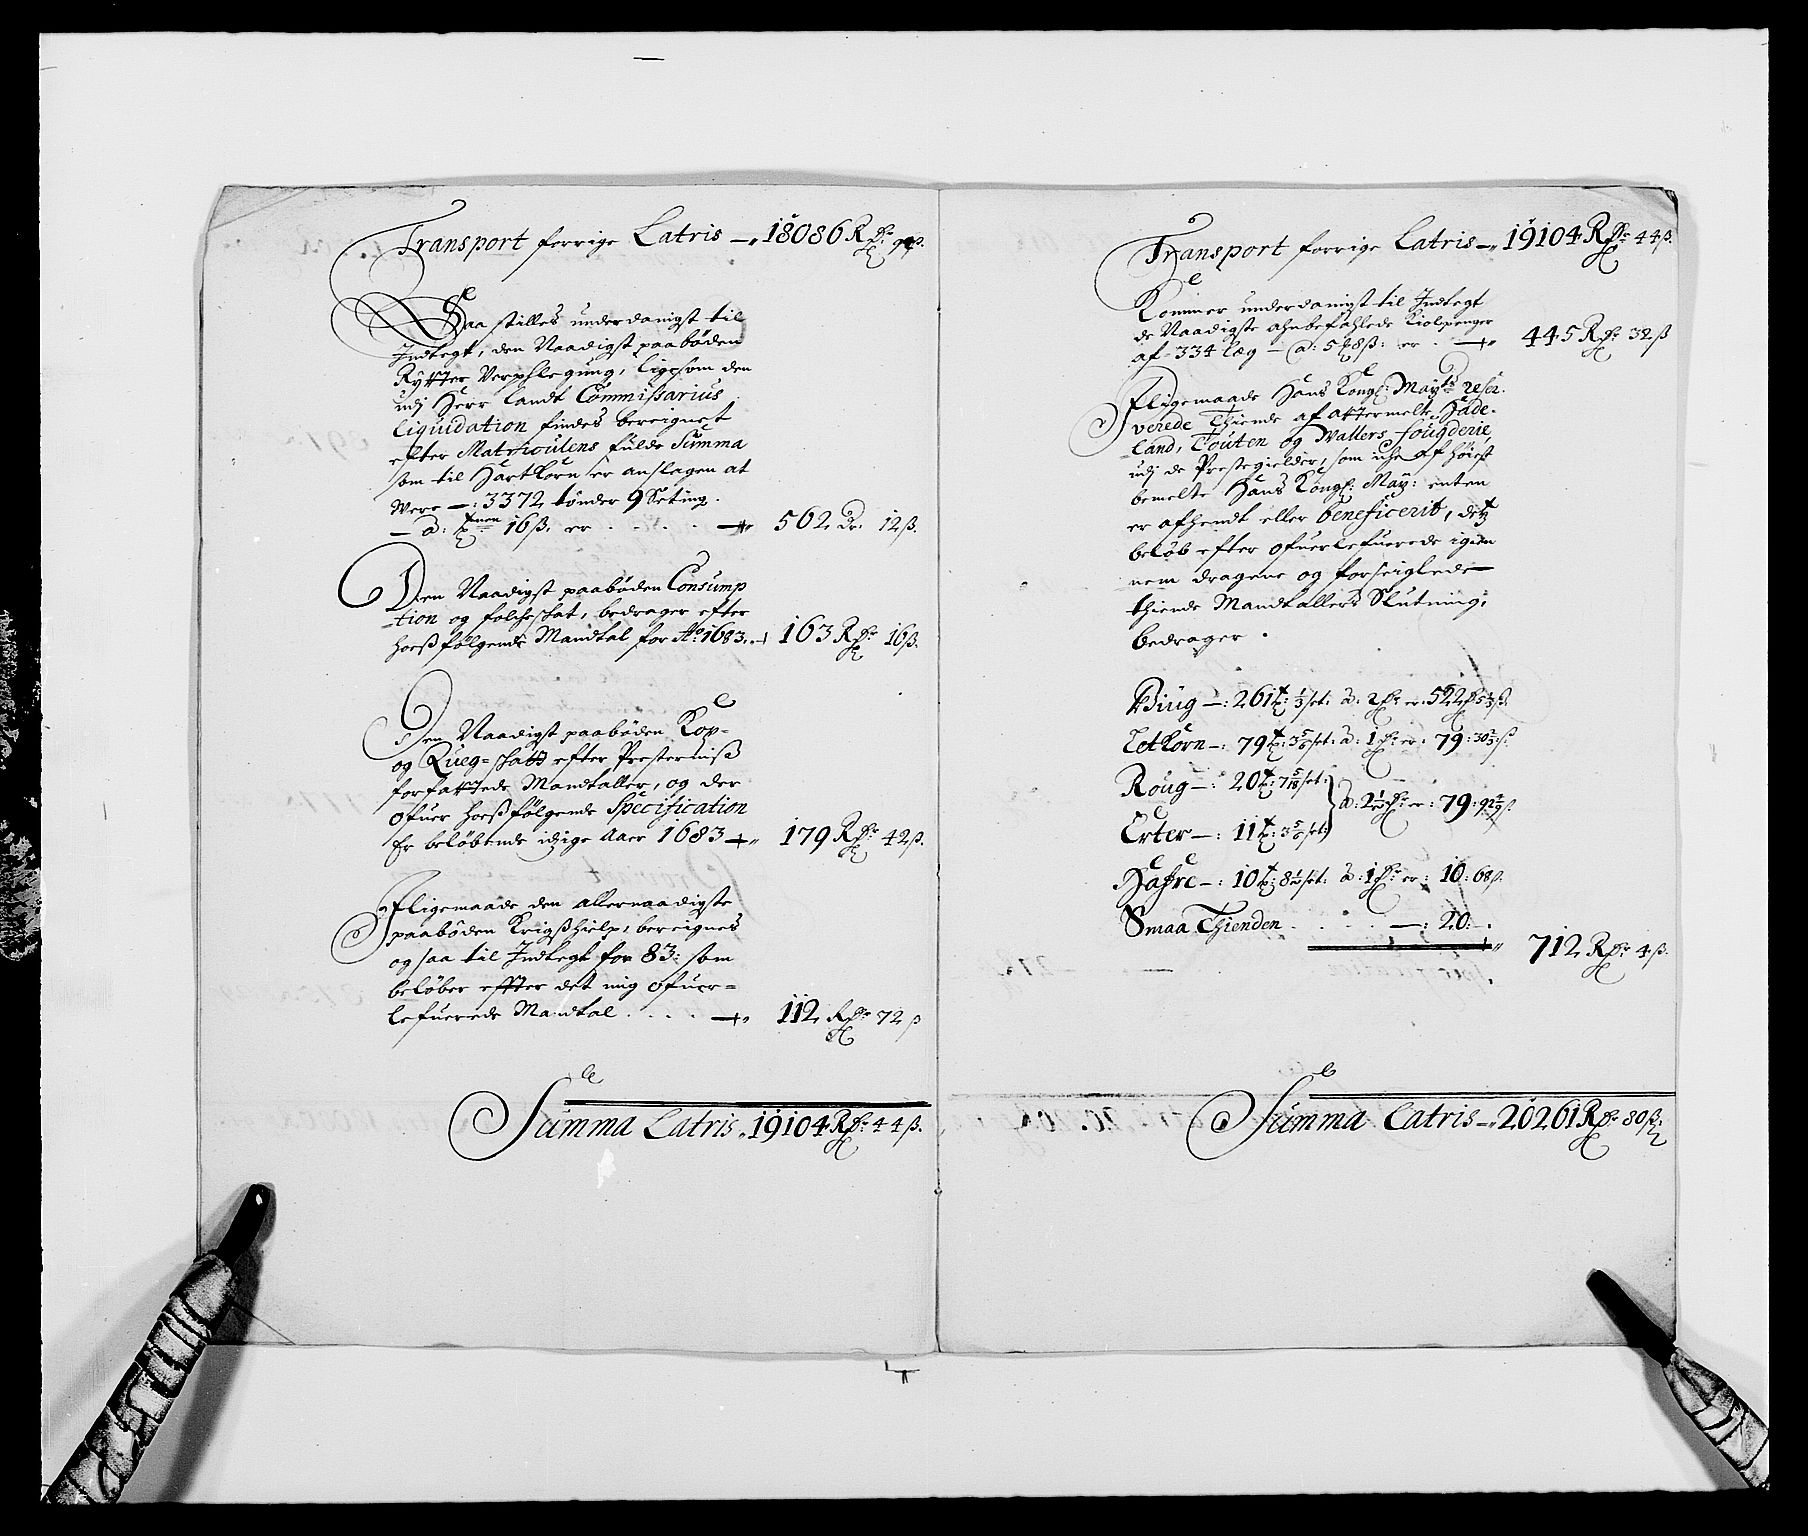 Transport forrige Latris —„ 18086 Rdr
Saa stilles underdanigst til
Indtegt, den Naadigst paabøden
Rytter Verphlegung, ligesom den
udj Herr Landt Commissarius
Liquidation findes bereignet
efter Matricülens fulde Summa
som til Hartkorn er anslagen at
Were —: 3372 tønder 9 Seting.
— a: 16 ß. er . . . . —„ 562 Dr. 12 ß.
Den Naadigst paabøden Consump
-tion og folcheskat, bedrager efter
hosfølgende Mandtal for Ao. 1683. 163 Rdr 16 ß.
Den Naadigst paabøden Kop-
og Queg=skatt efter Presternis
forfattede Mandtaller, og der
ofuer hosfølgende Specification
Er beløbende idige Aaer 1683 —„ 179 Rdr 42 ß.
Ifligemaade den allernaadigste
paabøden Krigshielp, bereignes
og saa til Indtegt for 83: som
beløber effter det mig ofuer=
lefuerede Mandtal . . . . —„ 112 Rdr 72 ß
Summa Latris „ 19104 Rdr 44 ß.
Transport forrige Latris —„ 19104 Rdr 44 ß.
Kommer underdanigst til Indtegt
de Naadigste anbefahlede Kiolpenger
af 334 læg — a: 5 8 ß: er . —„ 445 Rdr 32 ß
Ifligemaade Hans Kongl: Mayts reser-
verede Thiende af attermelte Hade-
land, Touten og Valters fougderie,
udj de Prestegielder, som iche af høist
bemelte Hans Kongl: May: enten
er afhendt eller beneficerit, dets
beløb efter ofuerlefuerede igien
nem dragene og forseiglede
thiende Mandtallers Slutning,
bedrager .
Biug —: 261 t: 1/3 set: a: 2 dr er: 522 5 1/3 ß.
Letkorn —: 79 t: 3 5/6 set: a: 1 dr er: 79: 30 2/3 ß.
Roug —: 20 t: 7 5/18 set: a: 2 1/2 dr er: 79: 92 4/9 ß
Erter —: 11 t: 3 5/6 set:
Hafre —: 10 t: 8 1/2 set: a: 1 dr er: 10: 68 ß.
Smaa Thienden . . . . —: 20: —.
712 Rdr 4 ß.
Summa Latris —„ 20261 Rdr 80 ß.